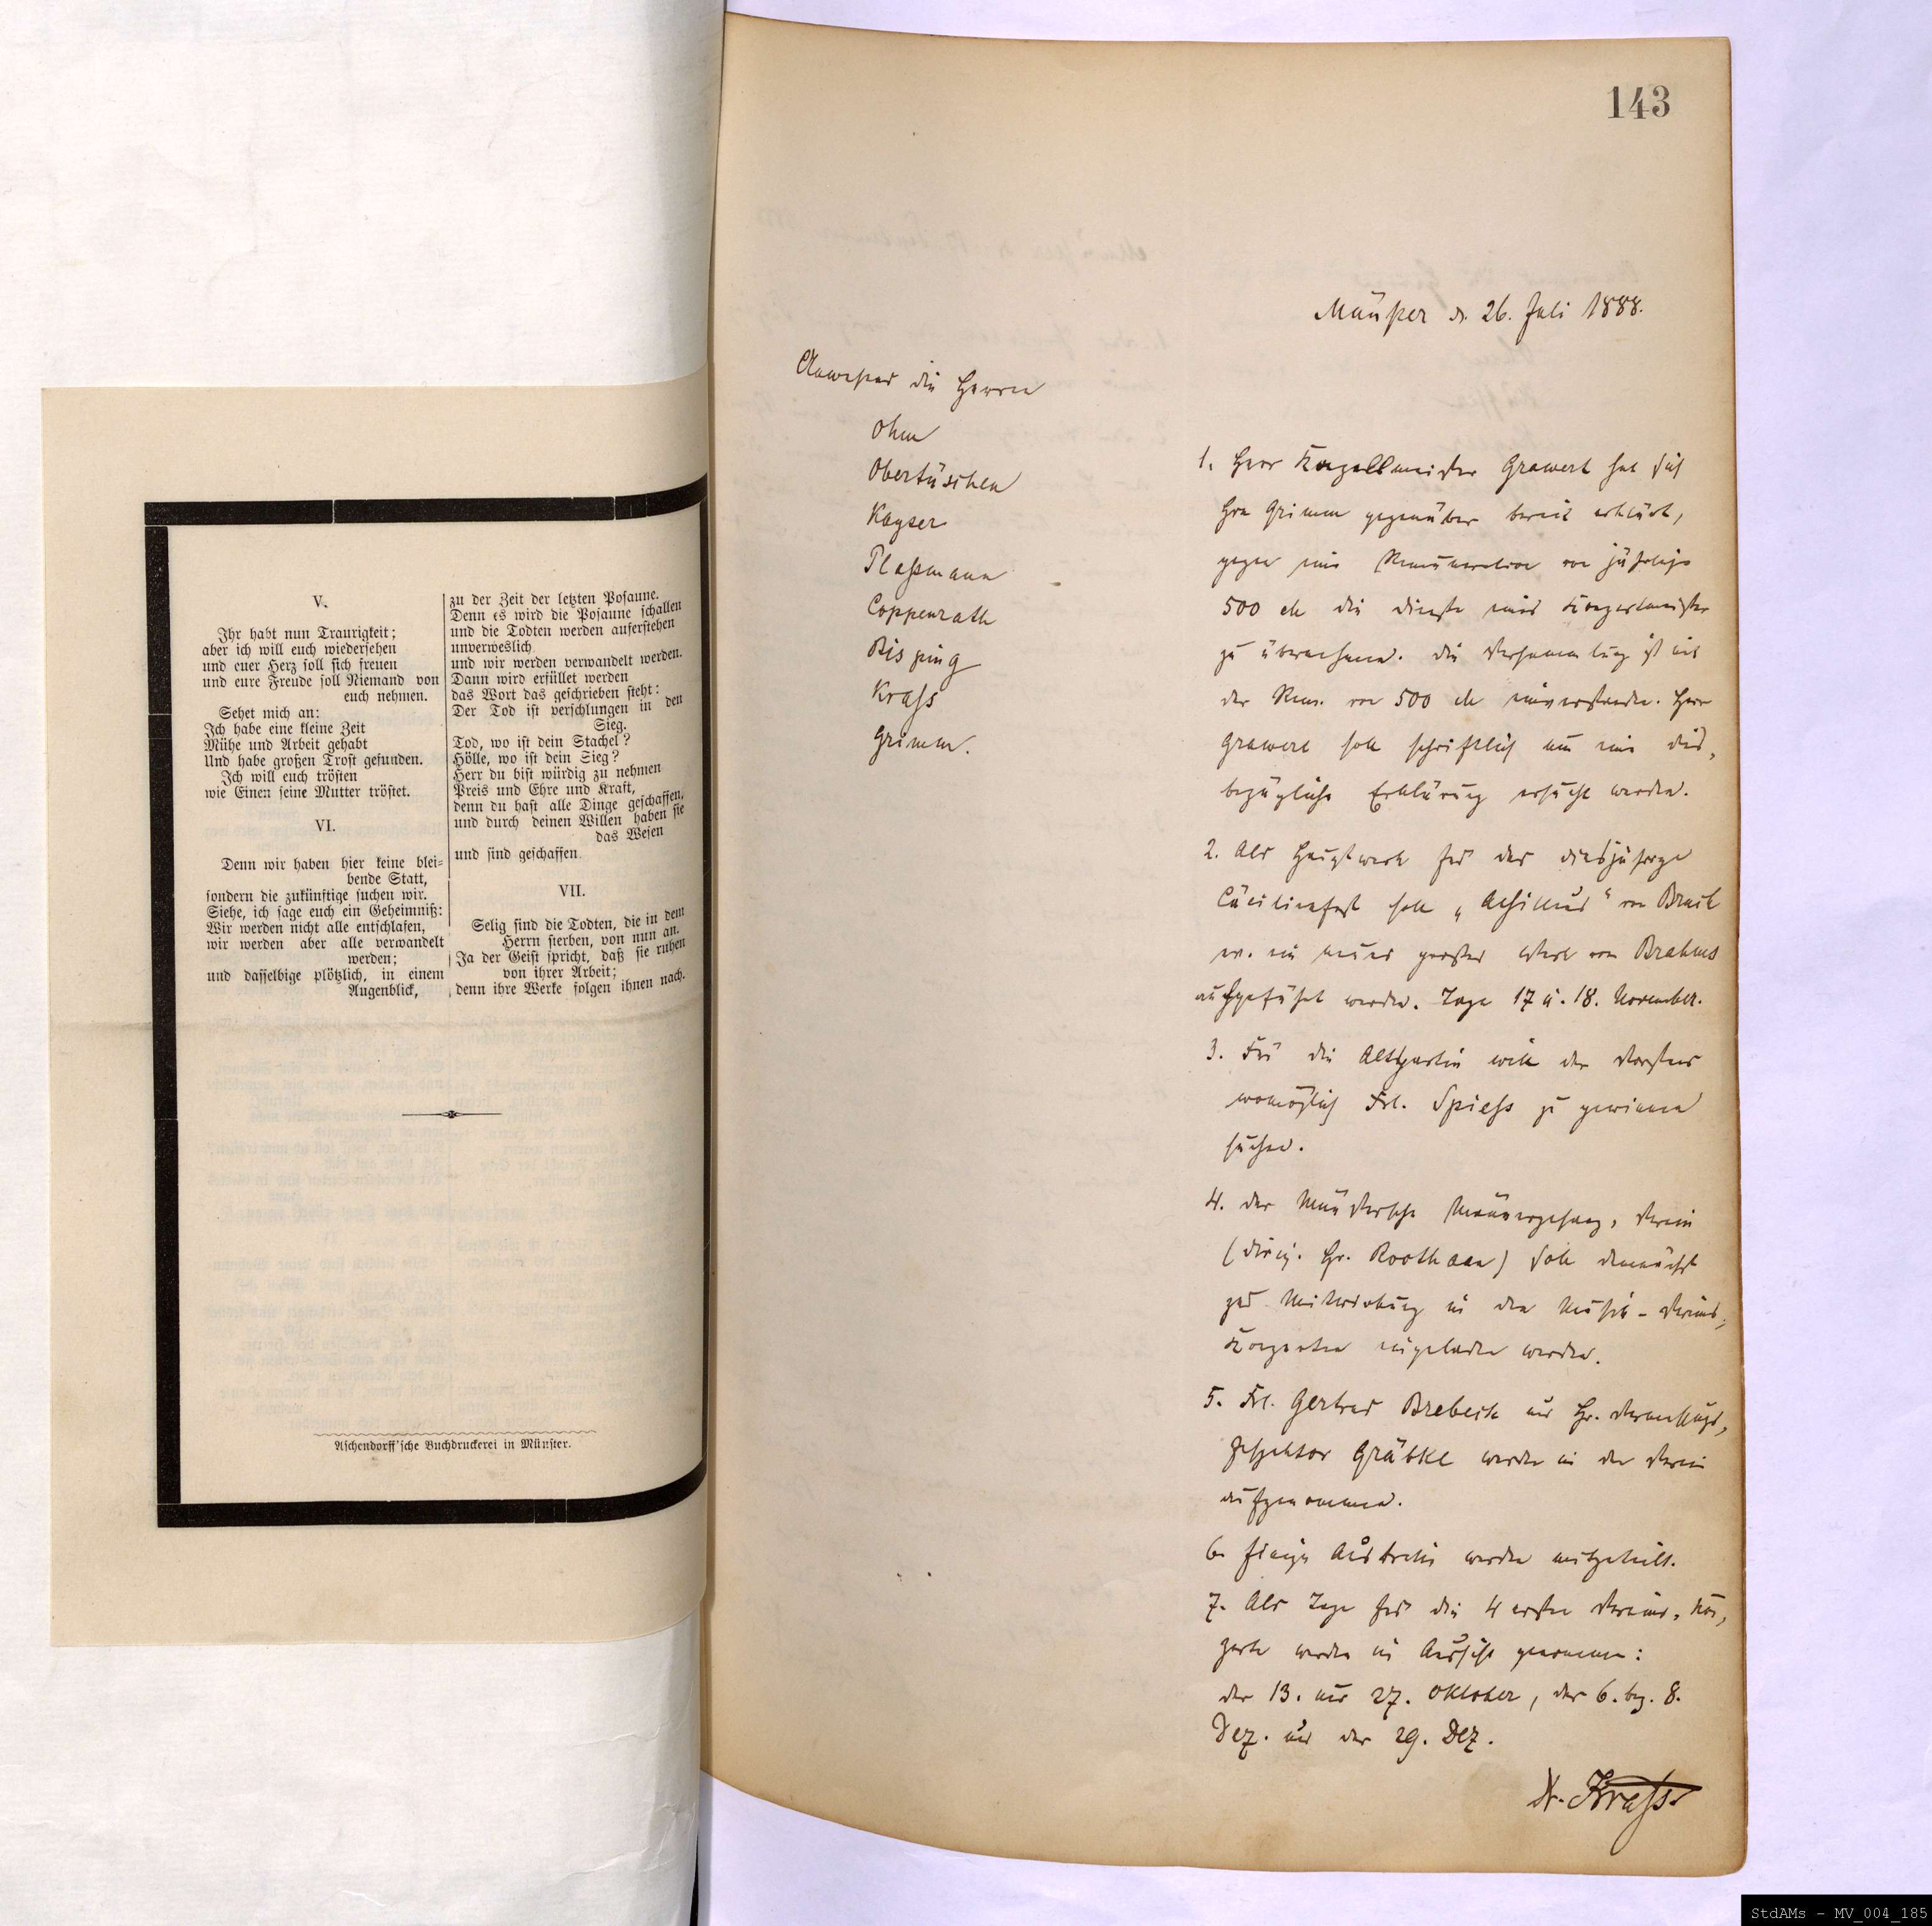 V.
Ihr habt nun Traurigkeit;
aber ich will euch wiedersehen
und euer Herz soll sich freuen
und eure Freude soll Niemand von
euch nehmen.
Sehet mich an:
Ich habe eine kleine Zeit
Mühe und Arbeit gehabt
Und habe großen Trost gefunden.
Ich will euch trösten
wie Einen seine Mutter tröstet.
VI.
Denn wir haben hier keine blei=
bende Statt,
sondern die zukünftige suchen wir.
Siehe, ich sage euch ein Geheimniß:
Wir werden nicht alle entschlafen,
wir werden aber alle verwandelt
werden;
und dasselbige plötzlich, in einem
Augenblick,
zu der Zeit der letzten Posaune.
Denn es wird die Posaune schallen
und die Todten werden auferstehen
unverweslich
und wir werden verwandelt werden.
Dann wird erfüllet werden
das Wort das geschrieben steht:
Der Tod ist verschlungen in den
Sieg.
Tod, wo ist dein Stachel?
Hölle, wo ist dein Sieg?
Herr du bist würdig zu nehmen
Preis und Ehre und Kraft,
denn du hast alle Dinge geschaffen,
und durch deinen Willen haben sie
das Wesen
und sind geschaffen.
VII.
Selig sind die Todten, die in dem
Herrn sterben, von nun an.
Ja der Geist spricht, daß sie ruhen
von ihrer Arbeit;
denn ihre Werke folgen ihnen nach.
Aschendorff'sche Buchdruckerei in Münster.
143
Münster d. 26. Juli 1888.
Anwesend die Herren
Ohm
Obertüschen
Kayser
Plaßmann
Coppenrath
Bisping
Kraß
Grimm.
1. Herr Kapellmeister Grawert hat sich
Hrn Grimm gegenüber bereit erklärt,
gegen eine Remuneration von jährlich
500 M die Dienste eines Konzertmeister
zu übernehmen. Die Versammlung ist mit
der Rem. von 500 M einverstanden. Herr
Grawert soll schriftlich um eine dies,
bezügliche Erklärung ersucht werden.
2. Als Hauptwerk für das diesjährige
Cäcilienfest soll „Achilleus" von Bruch
ev. ein neues großes Werk von Brahms
aufgeführt werden. Tage 17 u. 18. November.
3. Für die Altpartie will der Vorstand
womöglich Frl. Spieß zu gewinnen
suchen.
4. Der Münstersche Männergesang, Verein
(Dirig. Hr. Roothaan) soll demnächst
zur Mitwirkung in den Musik-Vereins,
Konzerten eingeladen werden.
5. Frl. Gertrud Brebeck und Hr.
Inspektor Gräbke werden in den Verein
aufgenommen.
6. Einige Austritte werden mitgetheilt.
7. Als Tage für die 4 ersten Vereins, Kon,
zerte werden in Aussicht genommen:
der 13. und 27. Oktober, der 6. bez. 8.
Dez. und der 29. Dez.
Dr. Kraß
StdAMs - MV_004_185